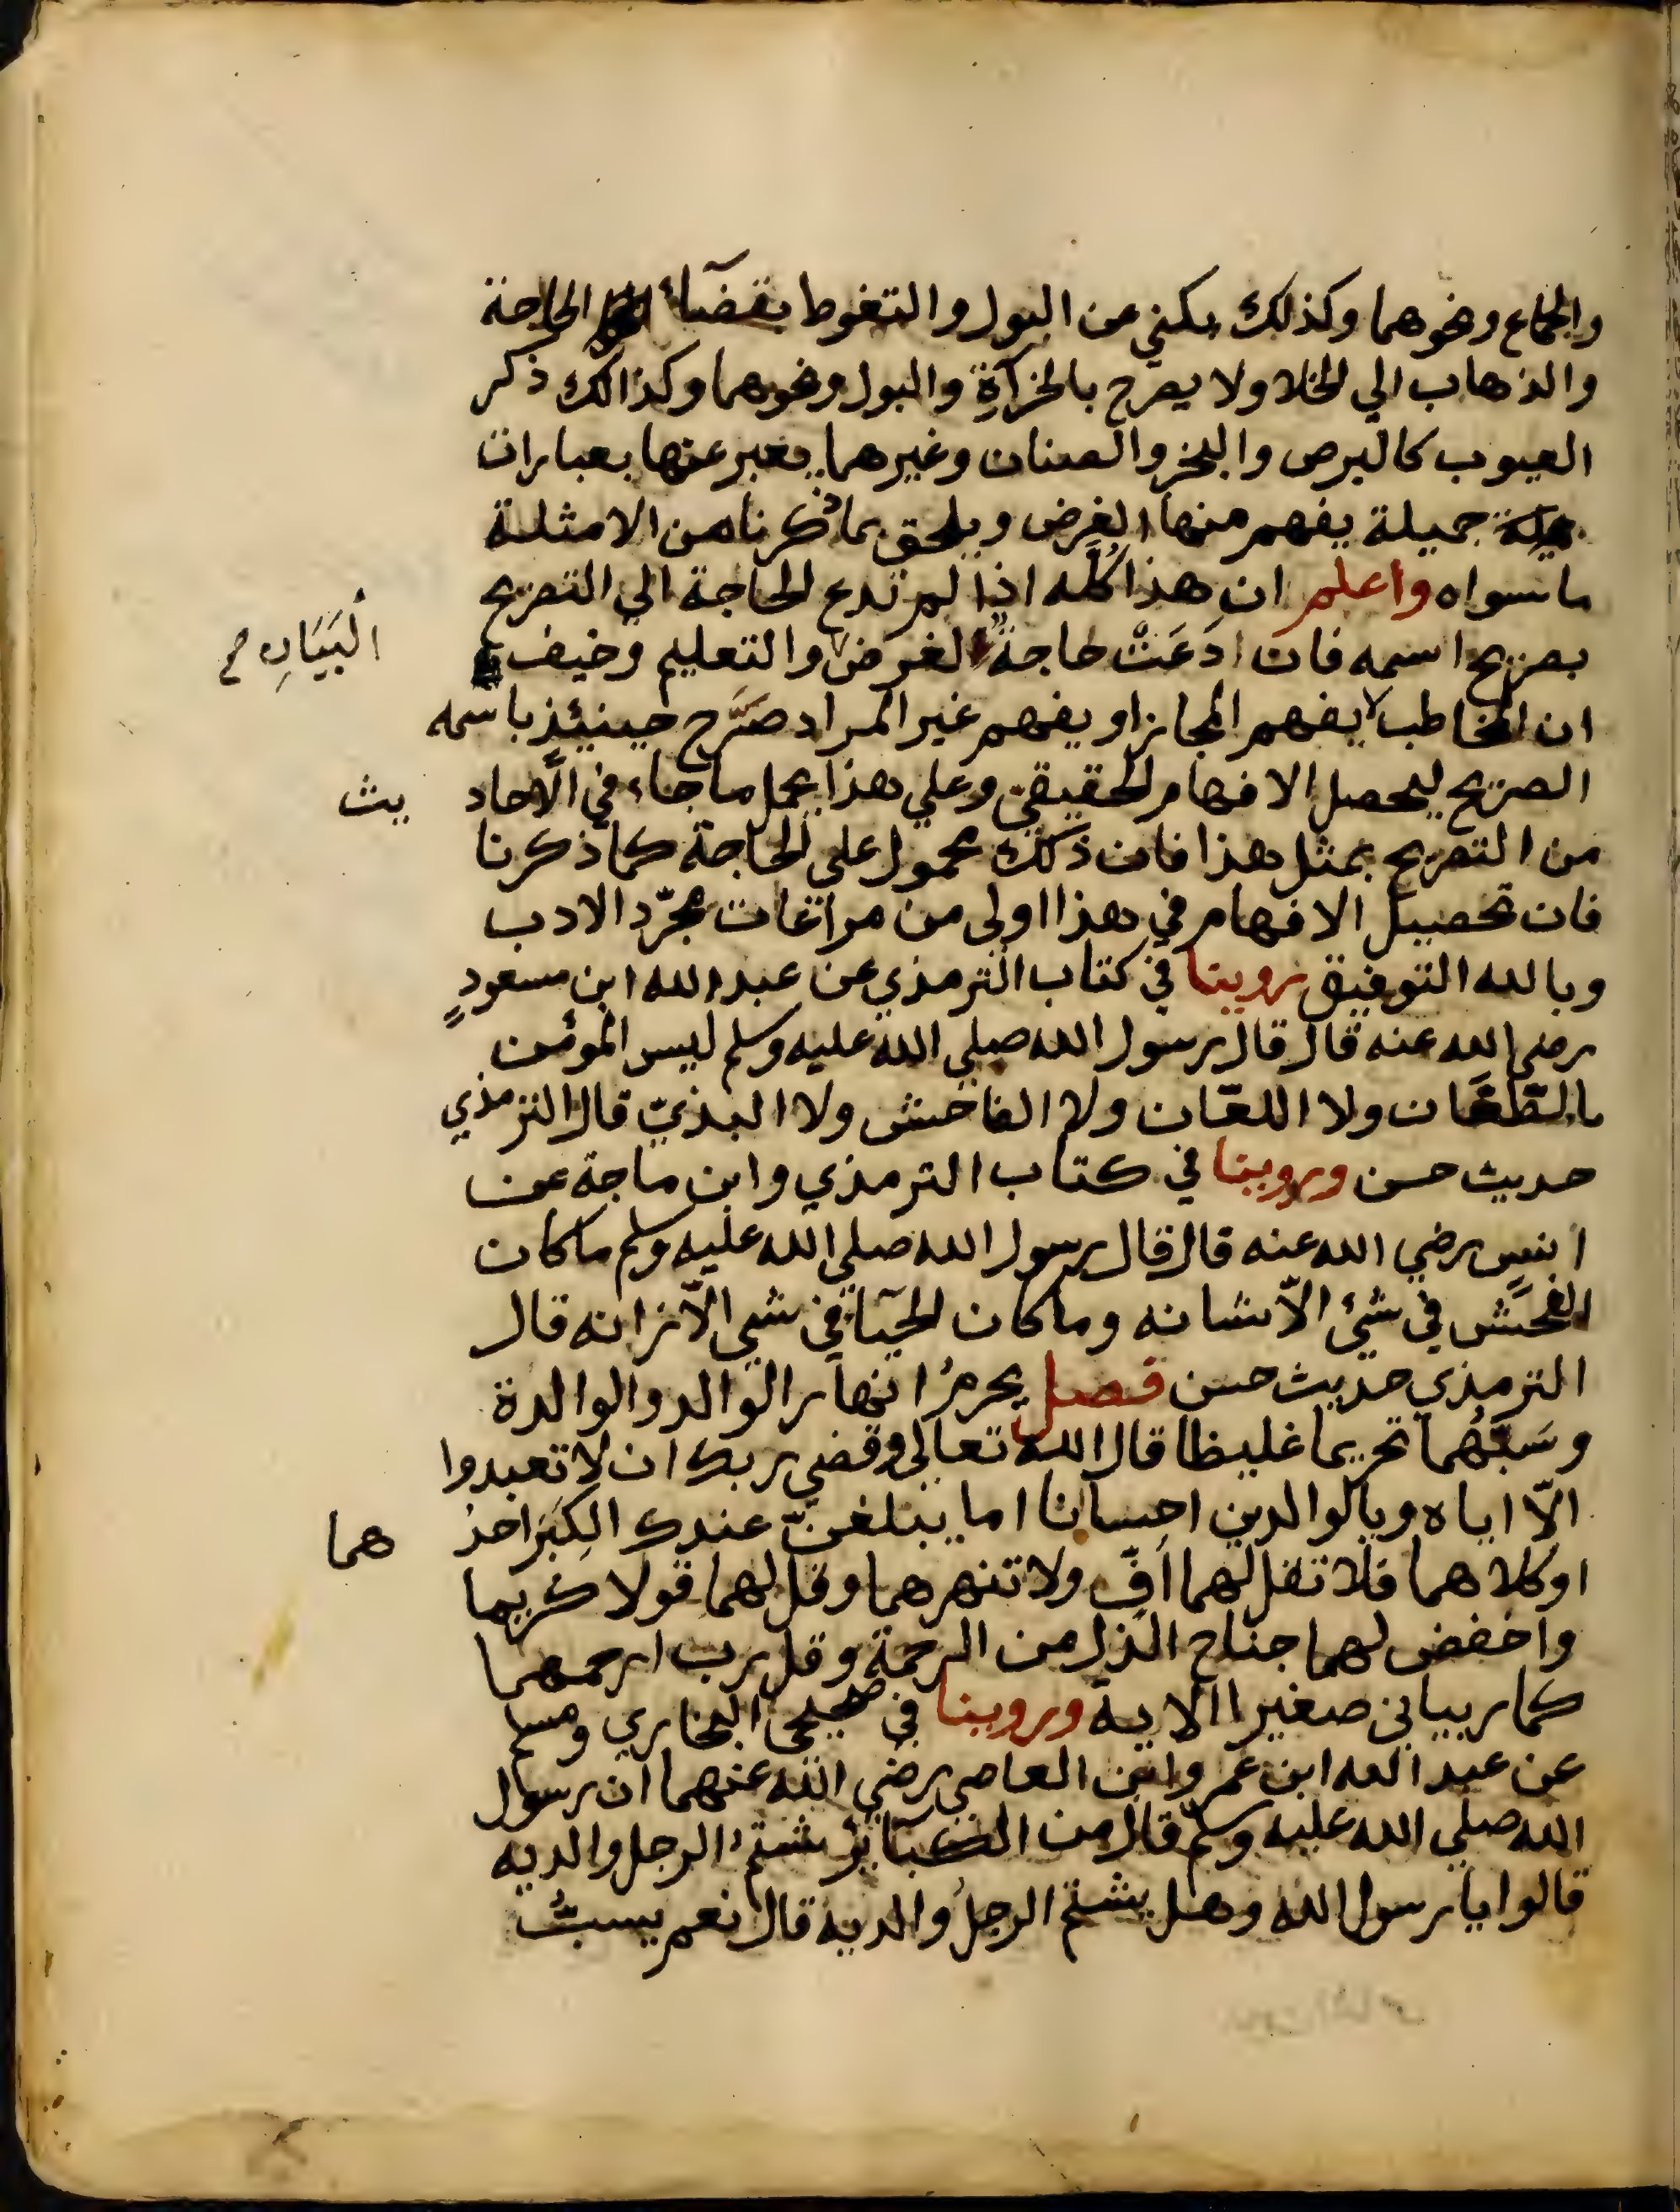 والجماع ونحوهما وكذلك يكني عن البول والتغوط بقضآء الحاجة
والذهاب الي الخلا ولا يصرح بالخرآة والبول ونحوهما وكذالك ذكر
العيوب كالبرص والبخر والصنان وغيرهما يعبر عنها بعبارات
جميلة يفهم منها الغرض ويلحق بما ذكرنا من الامثلة
ما سواه واعلم ان هذا كلّه اذا لم تدع الحاجة الي التصريح
بصريح اسمه فان دَعَتْ حاجة الغرض والتعليم وخيف
البَيَانِ صح
ان المخاطب لا يفهم المجاز او يفهم غير المراد صَرَّح حينئذ باسمه
الصريح ليحصل الافهام الحقيقي وعلي هذا يحمل ما جاء في الأحاد يث
من التصريح بمثل هذا فان ذلك محمول على الحاجة كما ذكرنا
فان تحصيل الافهام في هذا اولى من مراعات مجرّد الادب
وبالله التوفيق روينا في كتاب الترمذي عن عبد الله ابن مسعودٍ
رضي الله عنه قال قال رسول الله صلي الله عليه وسلم ليس المؤمن
بالطّعّان ولا اللعّان ولا الفاحش ولا البذيّ قال الترمذي
حديث حسن وروينا في كتاب الترمذي وابن ماجة عن
انسٍ رضي الله عنه قال قال رسول الله صلي الله عليه وسلم ما كان
الفحش في شئ الاّ شانه وما كان الحيآ في شي الاّ زانه قال
الترمذي حديث حسن فصل يحرمُ انتهار الوالد والوالدة
وسَبِّهُما تحريما غليظا قال الله تعالى وقضي ربك ان لا تعبدوا
الاّ اياه وبالوالدين احسانا اما يبلغنّ عندك الكِبَر احد هما
او كلاهما فلا تقل لهما افٍّ ولا تنهرهما وقل لهما قولا كريما
واخفض لهما جناح الذل من الرحمة وقل رب ارحمهما
كما ربياني صغيرا الاية وروينا في صحيحى البخاري ومسلم
عن عبد الله ابن عمرو ابن العاصي رضي الله عنهما ان رسول
الله صلي الله عليه وسلّم قال من الكبآئر شتم الرجل والديه
قالوا يا رسول الله وهل يشتم الرجلُ والديه قال نعم يسبُّ